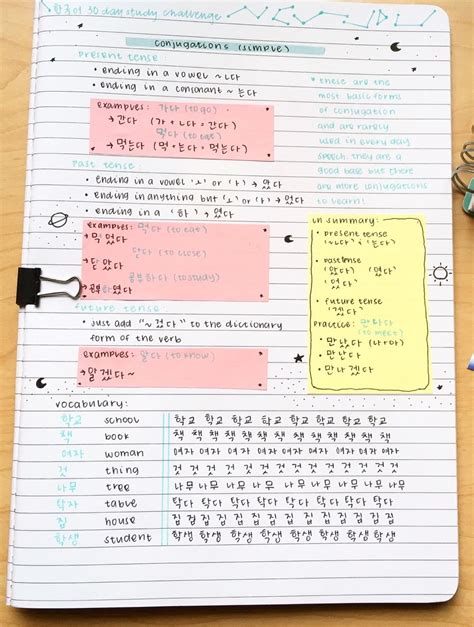 한국어 30 day study challenge
conjugations (simple)
present tense:
• ending in a vowel ~ ㄴ다
• ending in a consonant ~ 는다
examples: 가다 (to go)
→ 간다 (가 + ㄴ다 = 간다)
먹다 (to eat)
→ 먹는다 (먹 + 는다 = 먹는다)
* these are the
most basic forms
of conjugation
and are rarely
used in every day
speech. they are a
good base but there
are more conjugations
to learn!
past tense:
• ending in a vowel
• ending in anything but
• ending in a 하
examples: 먹다 (to eat)
→ 먹었다
닫다 (to close)
→ 닫았다
공부하다 (to study)
future tense:
• just add "~겠다" to the dictionary
form of the verb
examples: 알다 (to know)
→ 알겠다~
in summary:
• present tense
~ㄴ다, ~는다
• past tense
(았다) (었다)
• future tense
(겠다)
practice: 만나다
(to meet)
• 만났다
• 만난다
• 만나겠다
vocabulary:
학교 school 학교 학교 학교 학교 학교 학교 학교 학교
책 book 책 책 책 책 책 책 책 책 책 책
여자 woman 여자 여자 여자 여자 여자 여자 여자 여자
것 thing 것 것 것 것 것 것 것 것 것 것
나무 tree 나무 나무 나무 나무 나무 나무 나무 나무
탁자 table 탁자 탁자 탁자 탁자 탁자 탁자 탁자
집 house 집 집 집 집 집 집 집 집 집 집
학생 student 학생 학생 학생 학생 학생 학생 학생